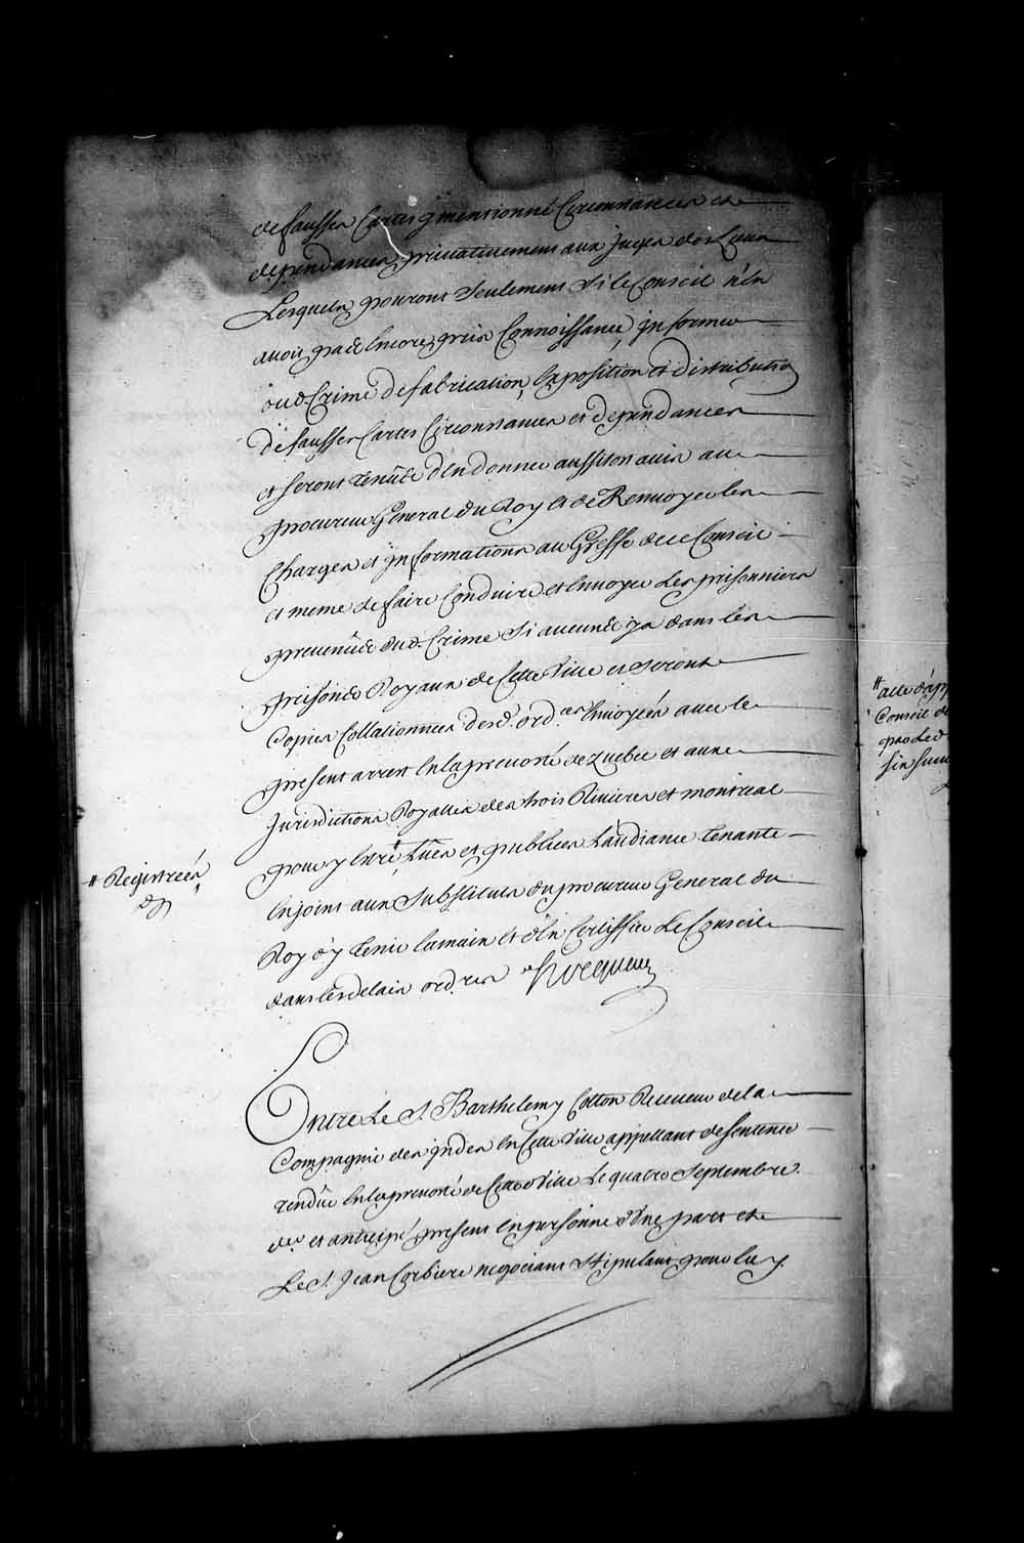 de fausses Cartes y mentionné Circonstances et
dependances privativement aux juges des Lieux
Lesquels pouront seulement si le Conseil n'En
avoit pas Encore pris Connoissance, jnformer
du d. Crime de fabrication, Exposition et distribution
de fausses Cartes Circonstances et dependances
et seront tenûs d'En donner aussitost avis au
procureur General du Roy et de Renvoyer les
Charges et jnformations au Greffe de ce Conseil
et meme de faire Conduire et Envoyer Les prisonniers
prevenûs du d. Crime si aucuns y a dans les
prisons Royaux de Cette Ville et seront
Copies Collationnées desd. ord.ces Envoyées avec le
present arrest En la prevosté de Quebec et aux
Jurisdictions Royalles des trois Rivieres et montreal
pour y Estre # Lües et publiées Laudiance tenante
# Registrées
Enjoint aux Substituts du procureur General du
Roy d'y tenir la main et d'En Certiffier Le Conseil
dans les delais ord.res Hocquart
Entre Le S. Barthelemy Cotton Receveur de la
Compagnie des jndes En Cette Ville appellant de sentence
rendüe En la prevosté de Cette Ville Le quatre Septembre
d.er et anticipé present En personne d'Une part et
Le S. Jean Corbiere negociant Stipulant pour luy
# acte d'app
Conseil de